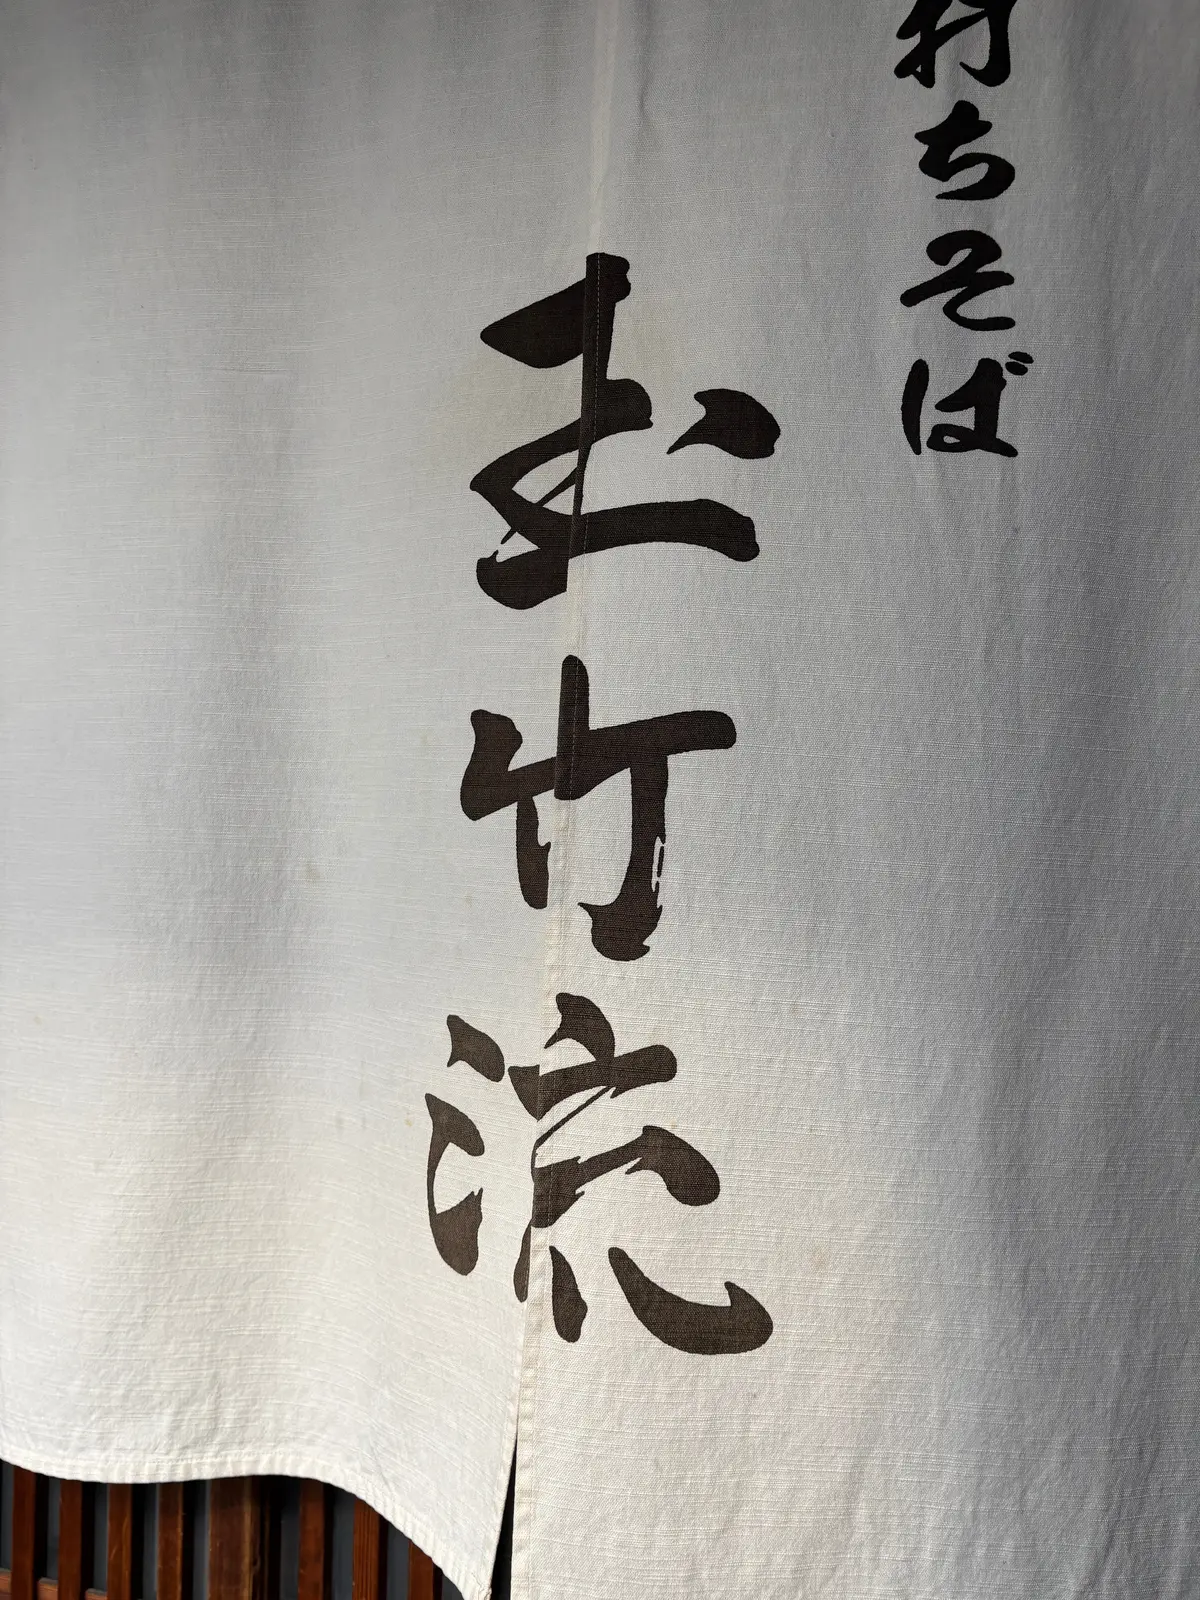 打ちそば
玉竹流